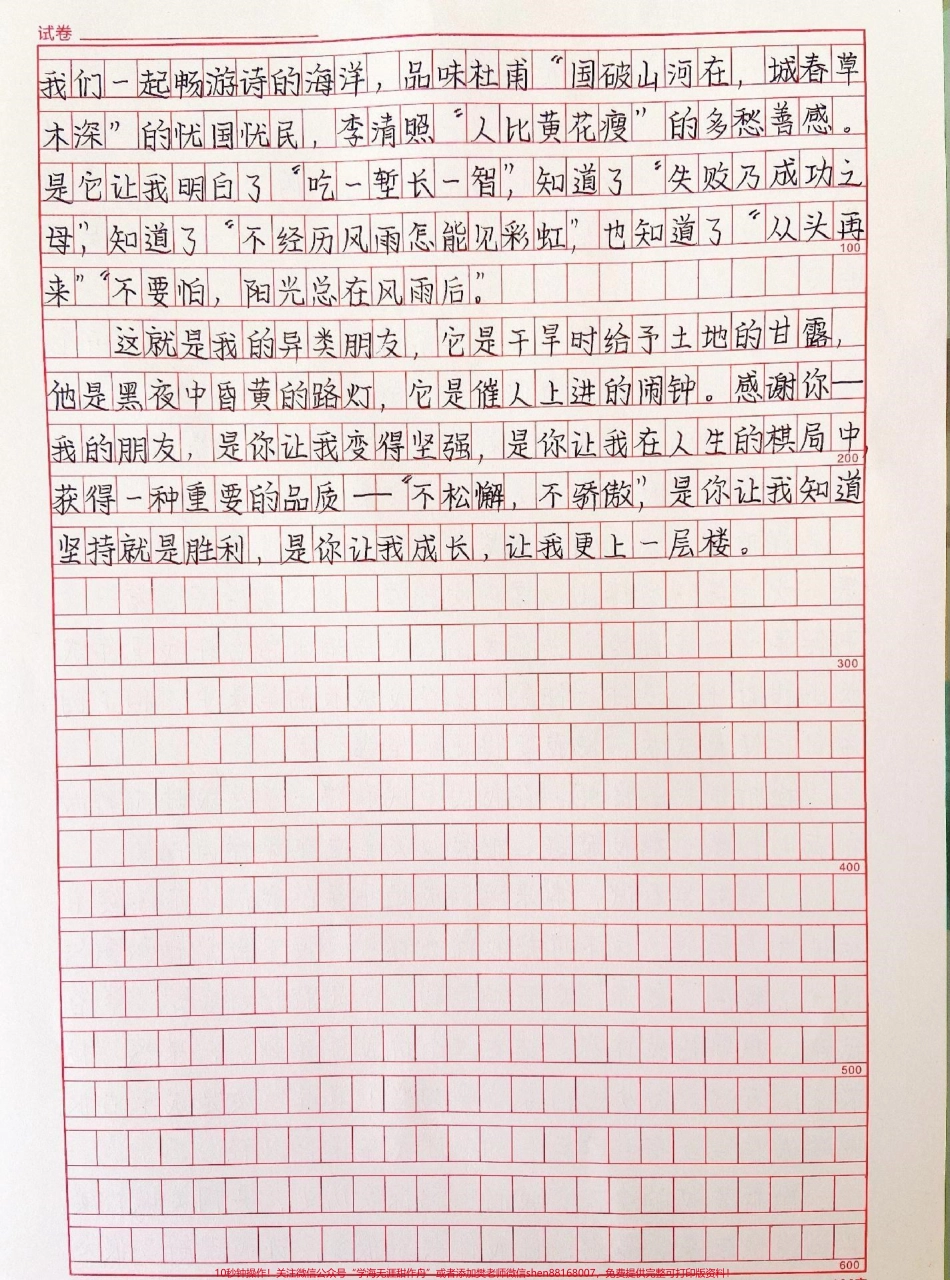 试卷
我们一起畅游诗的海洋，品味杜甫“国破山河在，城春草
木深”的忧国忧民，李清照“人比黄花瘦”的多愁善感。
是它让我明白了“吃一堑长一智”，知道了“失败乃成功之
母”，知道了“不经历风雨怎能见彩虹”，也知道了“从头再
100
来”“不要怕，阳光总在风雨后。”
这就是我的异类朋友，它是干旱时给予土地的甘露，
他是黑夜中昏黄的路灯，它是催人上进的闹钟。感谢你—
我的朋友，是你让我变得坚强，是你让我在人生的棋局中
200
获得一种重要的品质—“不松懈，不骄傲”，是你让我知道
坚持就是胜利，是你让我成长，让我更上一层楼。
300
400
500
600
10秒钟操作！关注微信公众号“学海无涯甜作舟”或者添加樊老师微信shen88168007，免费提供完整可打印版资料！